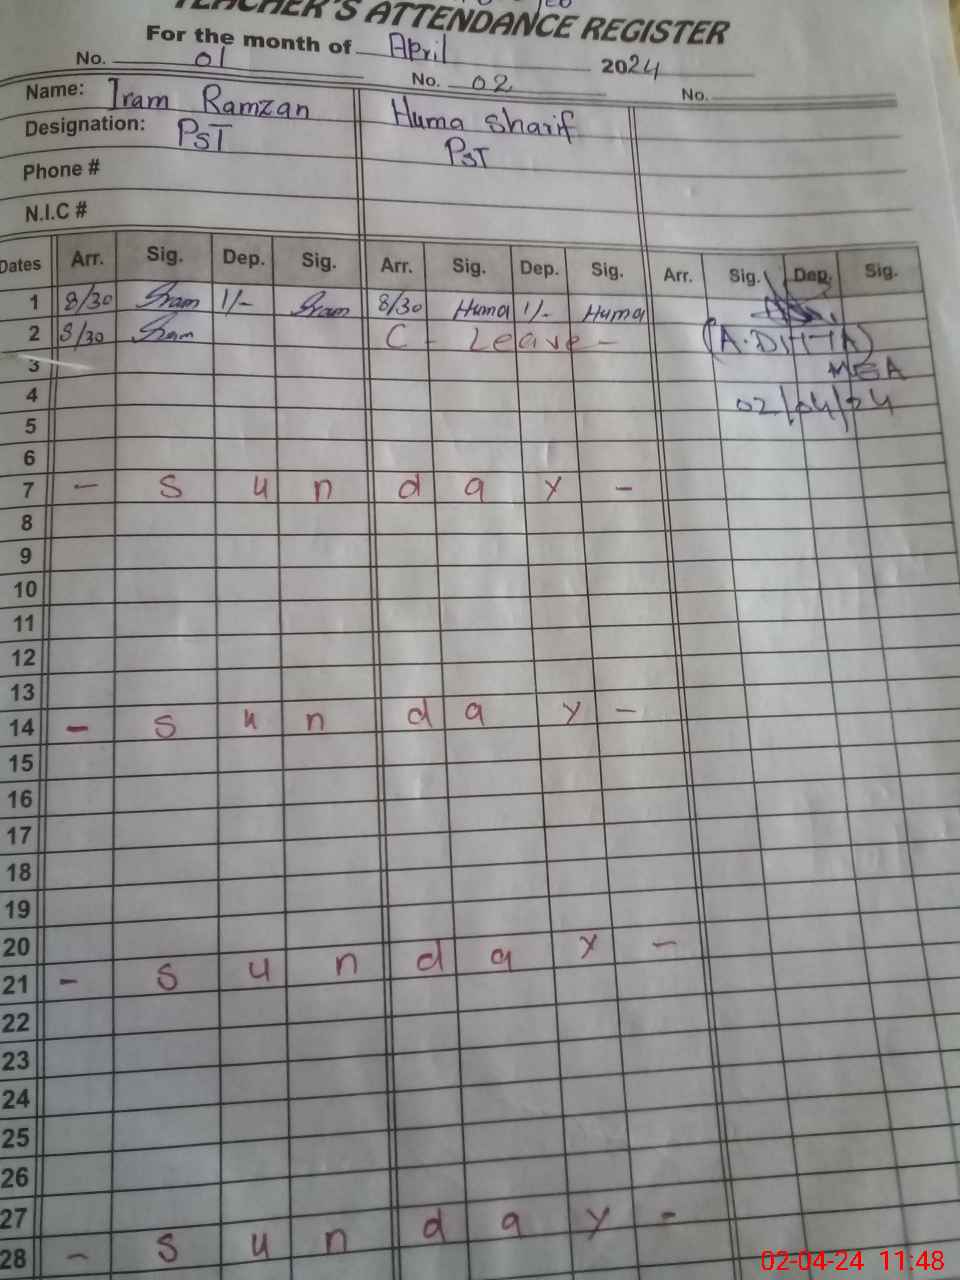 TEACHER'S ATTENDANCE REGISTER
For the month of April 2024
No. 01 No. 02 No.
Name: Iram Ramzan Huma Sharif
Designation: PST PST
Phone #
N.I.C #
Dates Arr. Sig. Dep. Sig. Arr. Sig. Dep. Sig. Arr. Sig. Dep. Sig.
1 8/30 Iram 1/- Iram 8/30 Huma 1/- Huma
2 8/30 Iram C - Leave - (A.DITTA)
3 MEA
4 02/04/24
5
6
7 - S u n d a y -
8
9
10
11
12
13
14 - S u n d a y -
15
16
17
18
19
20
21 - S u n d a y -
22
23
24
25
26
27
28 - S u n d a y -
02-04-24 11:48